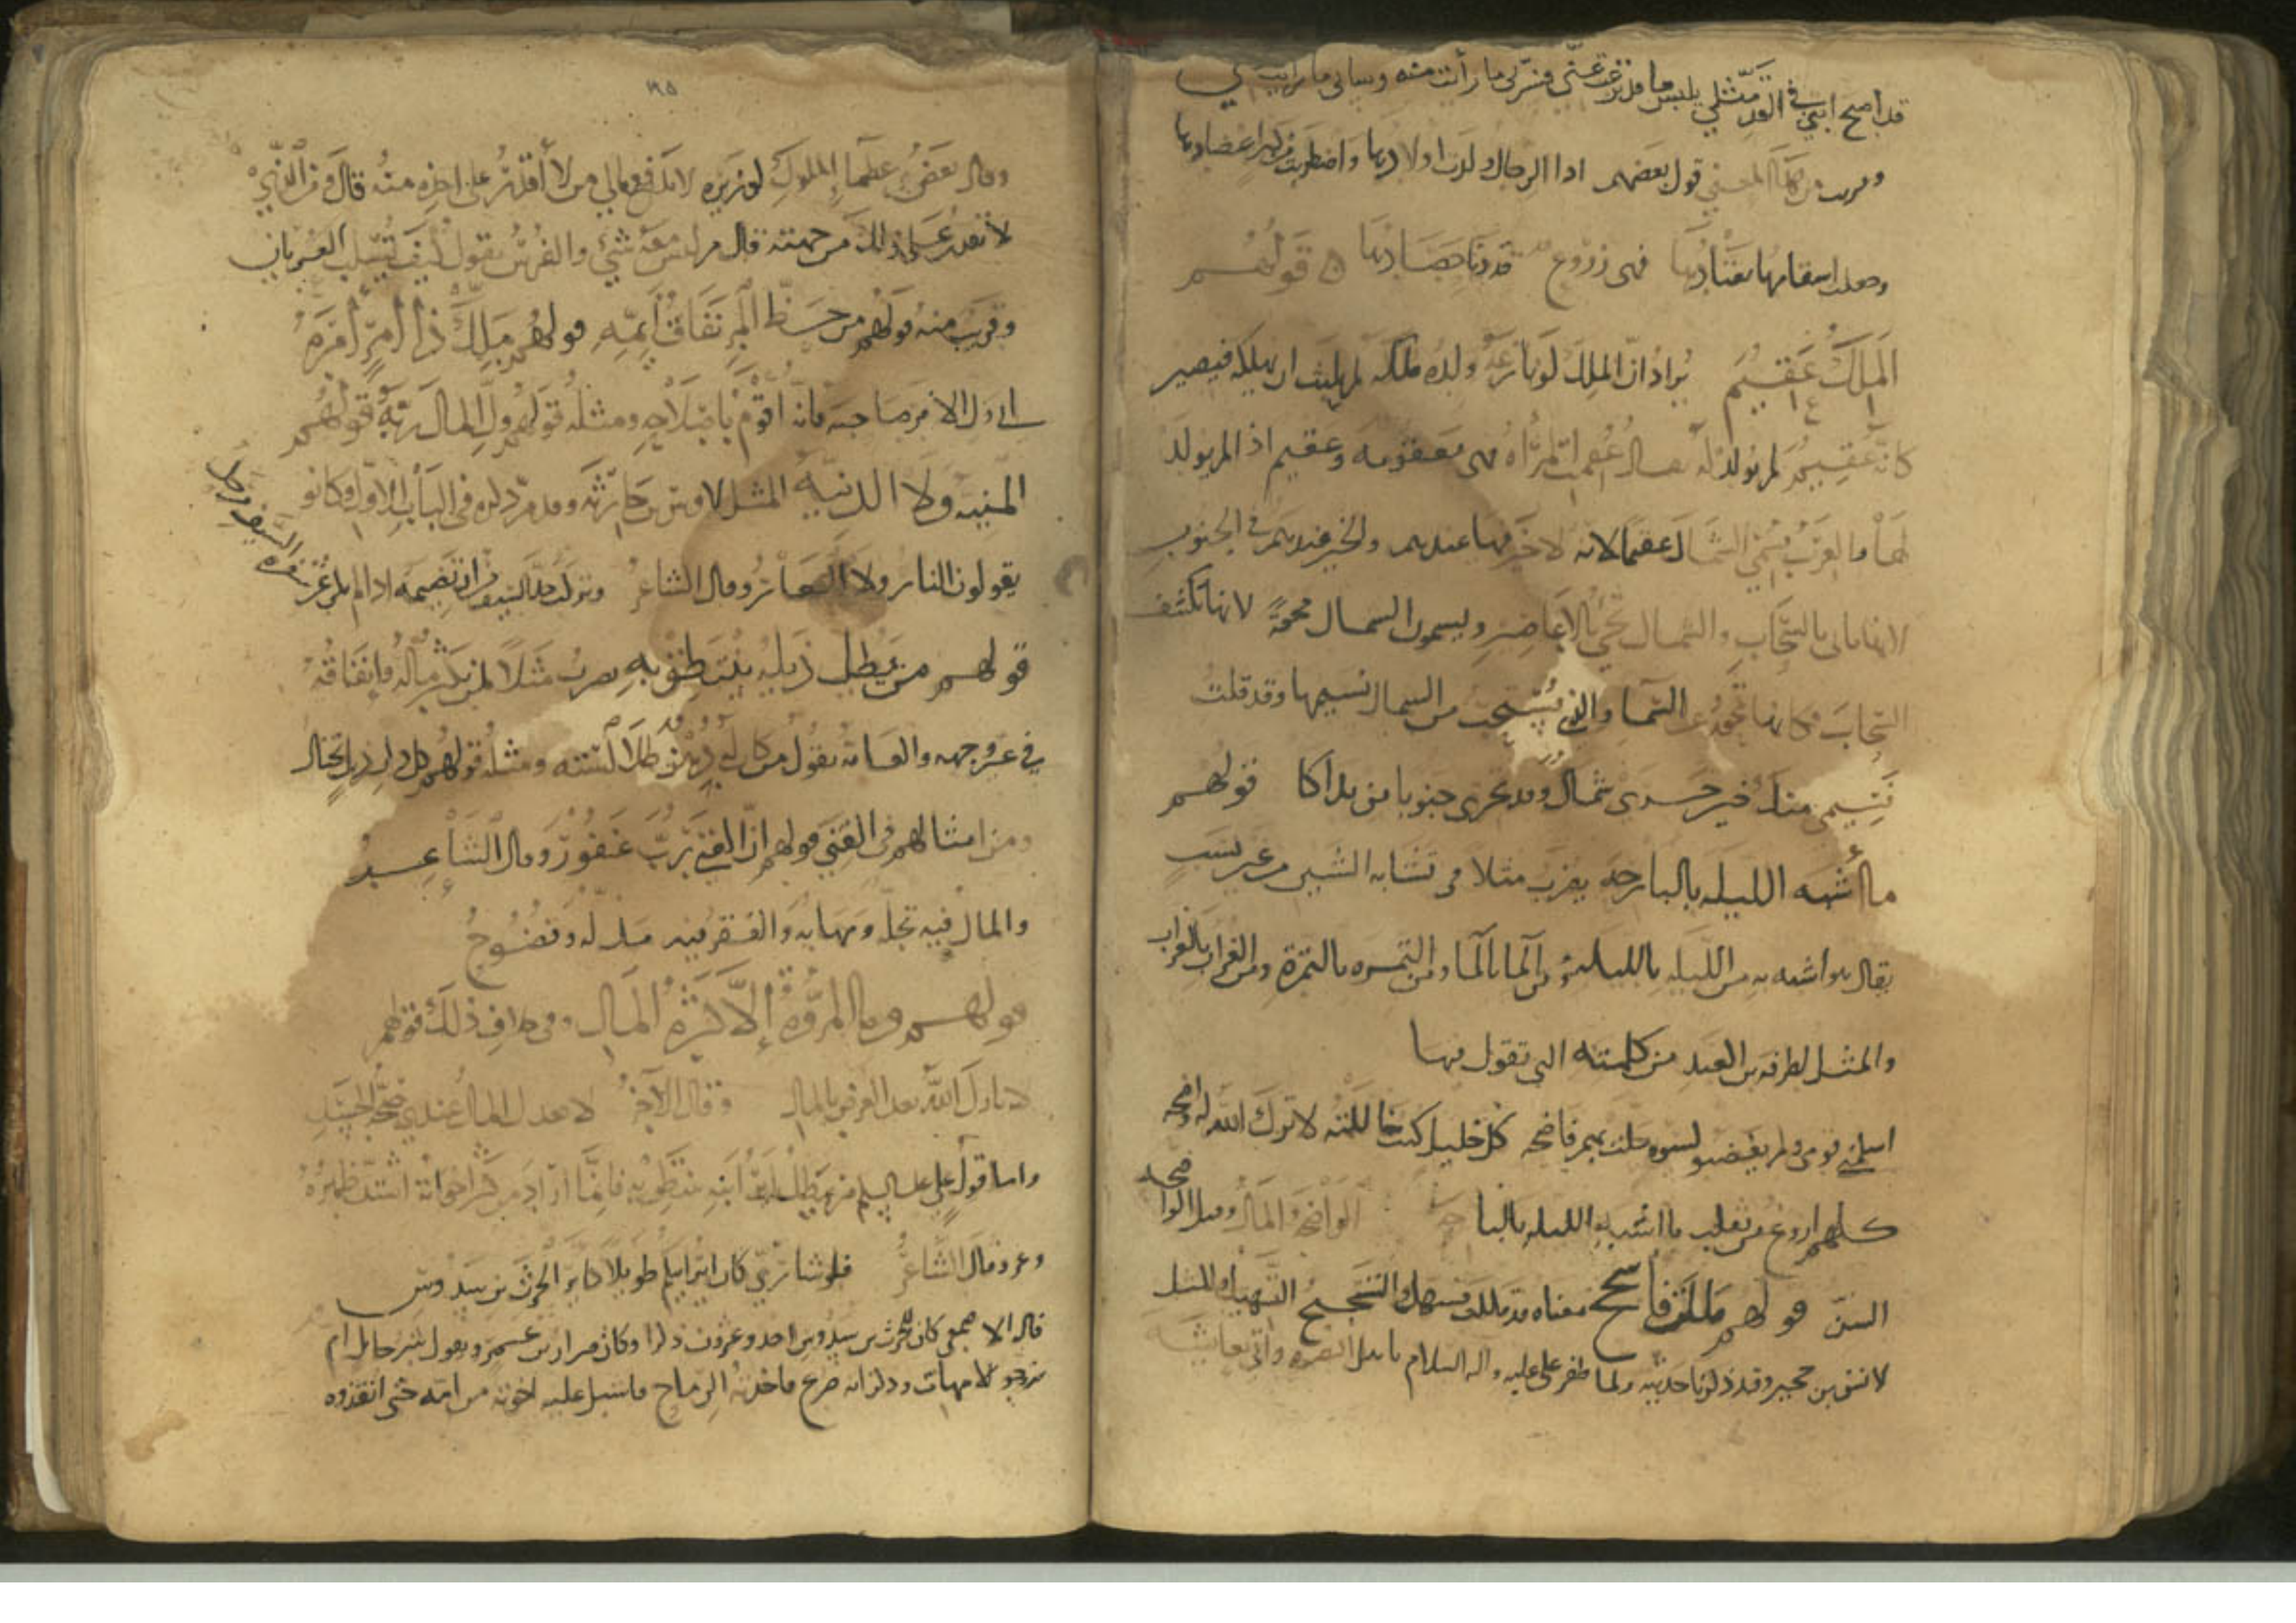 قد اصبح ابني في القد مثلي يلبس ما قد نزعت عني فسرني ما رأيت منه وساني ما رايت مني
وقريب من هذا المعنى قول بعضهم اذا الرجال ولدت اولادها واضطربت من كبر اعضادها
وجعلت اسقامها تعتادها فهى زروع قد دنا حصادها ه قولهم
الملك عقيم يراد ان الملك لو نازعه ولده ملكه لم يلبث ان يهلكه فيصير
كانه عقيم لم يولد له يقال عقمت المرأه فهى معقومه وعقيم اذا لم يولد
لها والعرب تسمي الشمال عقيما لانه لا خير فيها عندهم والخير عندهم في الجنوب
لانها تاتى بالسحاب والشمال تجي بالاعاصير ويسمون الشمال محوة لانها تكشف
السحاب فكانها تمحوه عن السما والذى يستحب من الشمال نسيمها وقد قلت
نسيمى منك خير حسرى شمال وقد تجرى جنوبا من نداكا قولهم
ما أشبه الليله بالبارحه يضرب مثلا فى تشابه الشيين من غير نسب
يقال هو اشبه به من الليله بالليله ومن الما بالما ومن التمره بالتمرة ومن الغراب بالغراب
والمثل لطرفه بن العبد من كلمته التى تقول فيها
اسلمنى قومى ولم يغضبوا لسوه حلت بهم فاضحه كل خليل كنت خاللته لا ترك الله له واضحه
كلهم اروغ من ثعلب ما اشبه الليله بالبارحه الواضحه المال وقيل الواضحه
السن قولهم ملكت فأسجح معناه قد ملكت فسهل والتسجيح التسهيل والمثل
لانس بن حجير وقد ذكرنا حديثه ولما ظفر على عليه و اله السلام باهل البصره واتى بعايشه
٢٩٥
وقال بعض علما الملوك لوزيره لا تدفع مالي من لا أقدر على اخذه منه قال ومن الذي
لا تقدر على ذلك من جهته قال من ليس معه شئ والفرس تقول كيف تسلب العريان
وقريب منه قولهم من حسن حظ المر نفاق ايمه قولهم ملك ذا امر امره
اى ول الامر صاحبه فانه اقوم باصلاحه ومثله قولهم ول المال ربه قولهم
المنيه ولا الدنيه المثل لاوس بن حارثه وقد مر ذكره فى الباب الاول وكانوا
يقولون النار ولا العار وقال الشاعر ويركب حد السيف من ان تضيمه اذا لم يكن عن شفرة السيف مزحل
قولهم من يطل ذيله ينتطق به يضرب مثلا لمن يكثر ماله وانفاقه
في غير وجهه والعامه تقول من كان له دهن طلا استه ومثله قولهم كل ذات ذيل تختال
ومن امثالهم فى الغنى قولهم ان الغنى رب غفور وقال الشاعر
والمال فيه تجلة ومهابه والفقر فيه مذله وفضوح
قولهم وما المروة إلا كثرة المال وفى خلاف ذلك قولهم
لا بارك الله بعد العرض بالمال وقال الآخر لا يعدل المال عندي صحة الجسد
واما قول على عليه السلم من يطل اير ابيه ينتطق به فانما اراد من كثر اخوانه اشتد ظهره
وعزه قال الشاعر فلو شا ربي كان اير ابيكم طويلا كاير الحرث بن سدوس
قال الاصمعى كان للحرث بن سدوس احد وعشرون ذكرا وكان ضرار بن عمرو يقول شر حايل ام
فزوجوا الامهات وذلك انه صرع فاخذته الرماح فاشبل عليه اخوته من امه حتى انقذوه